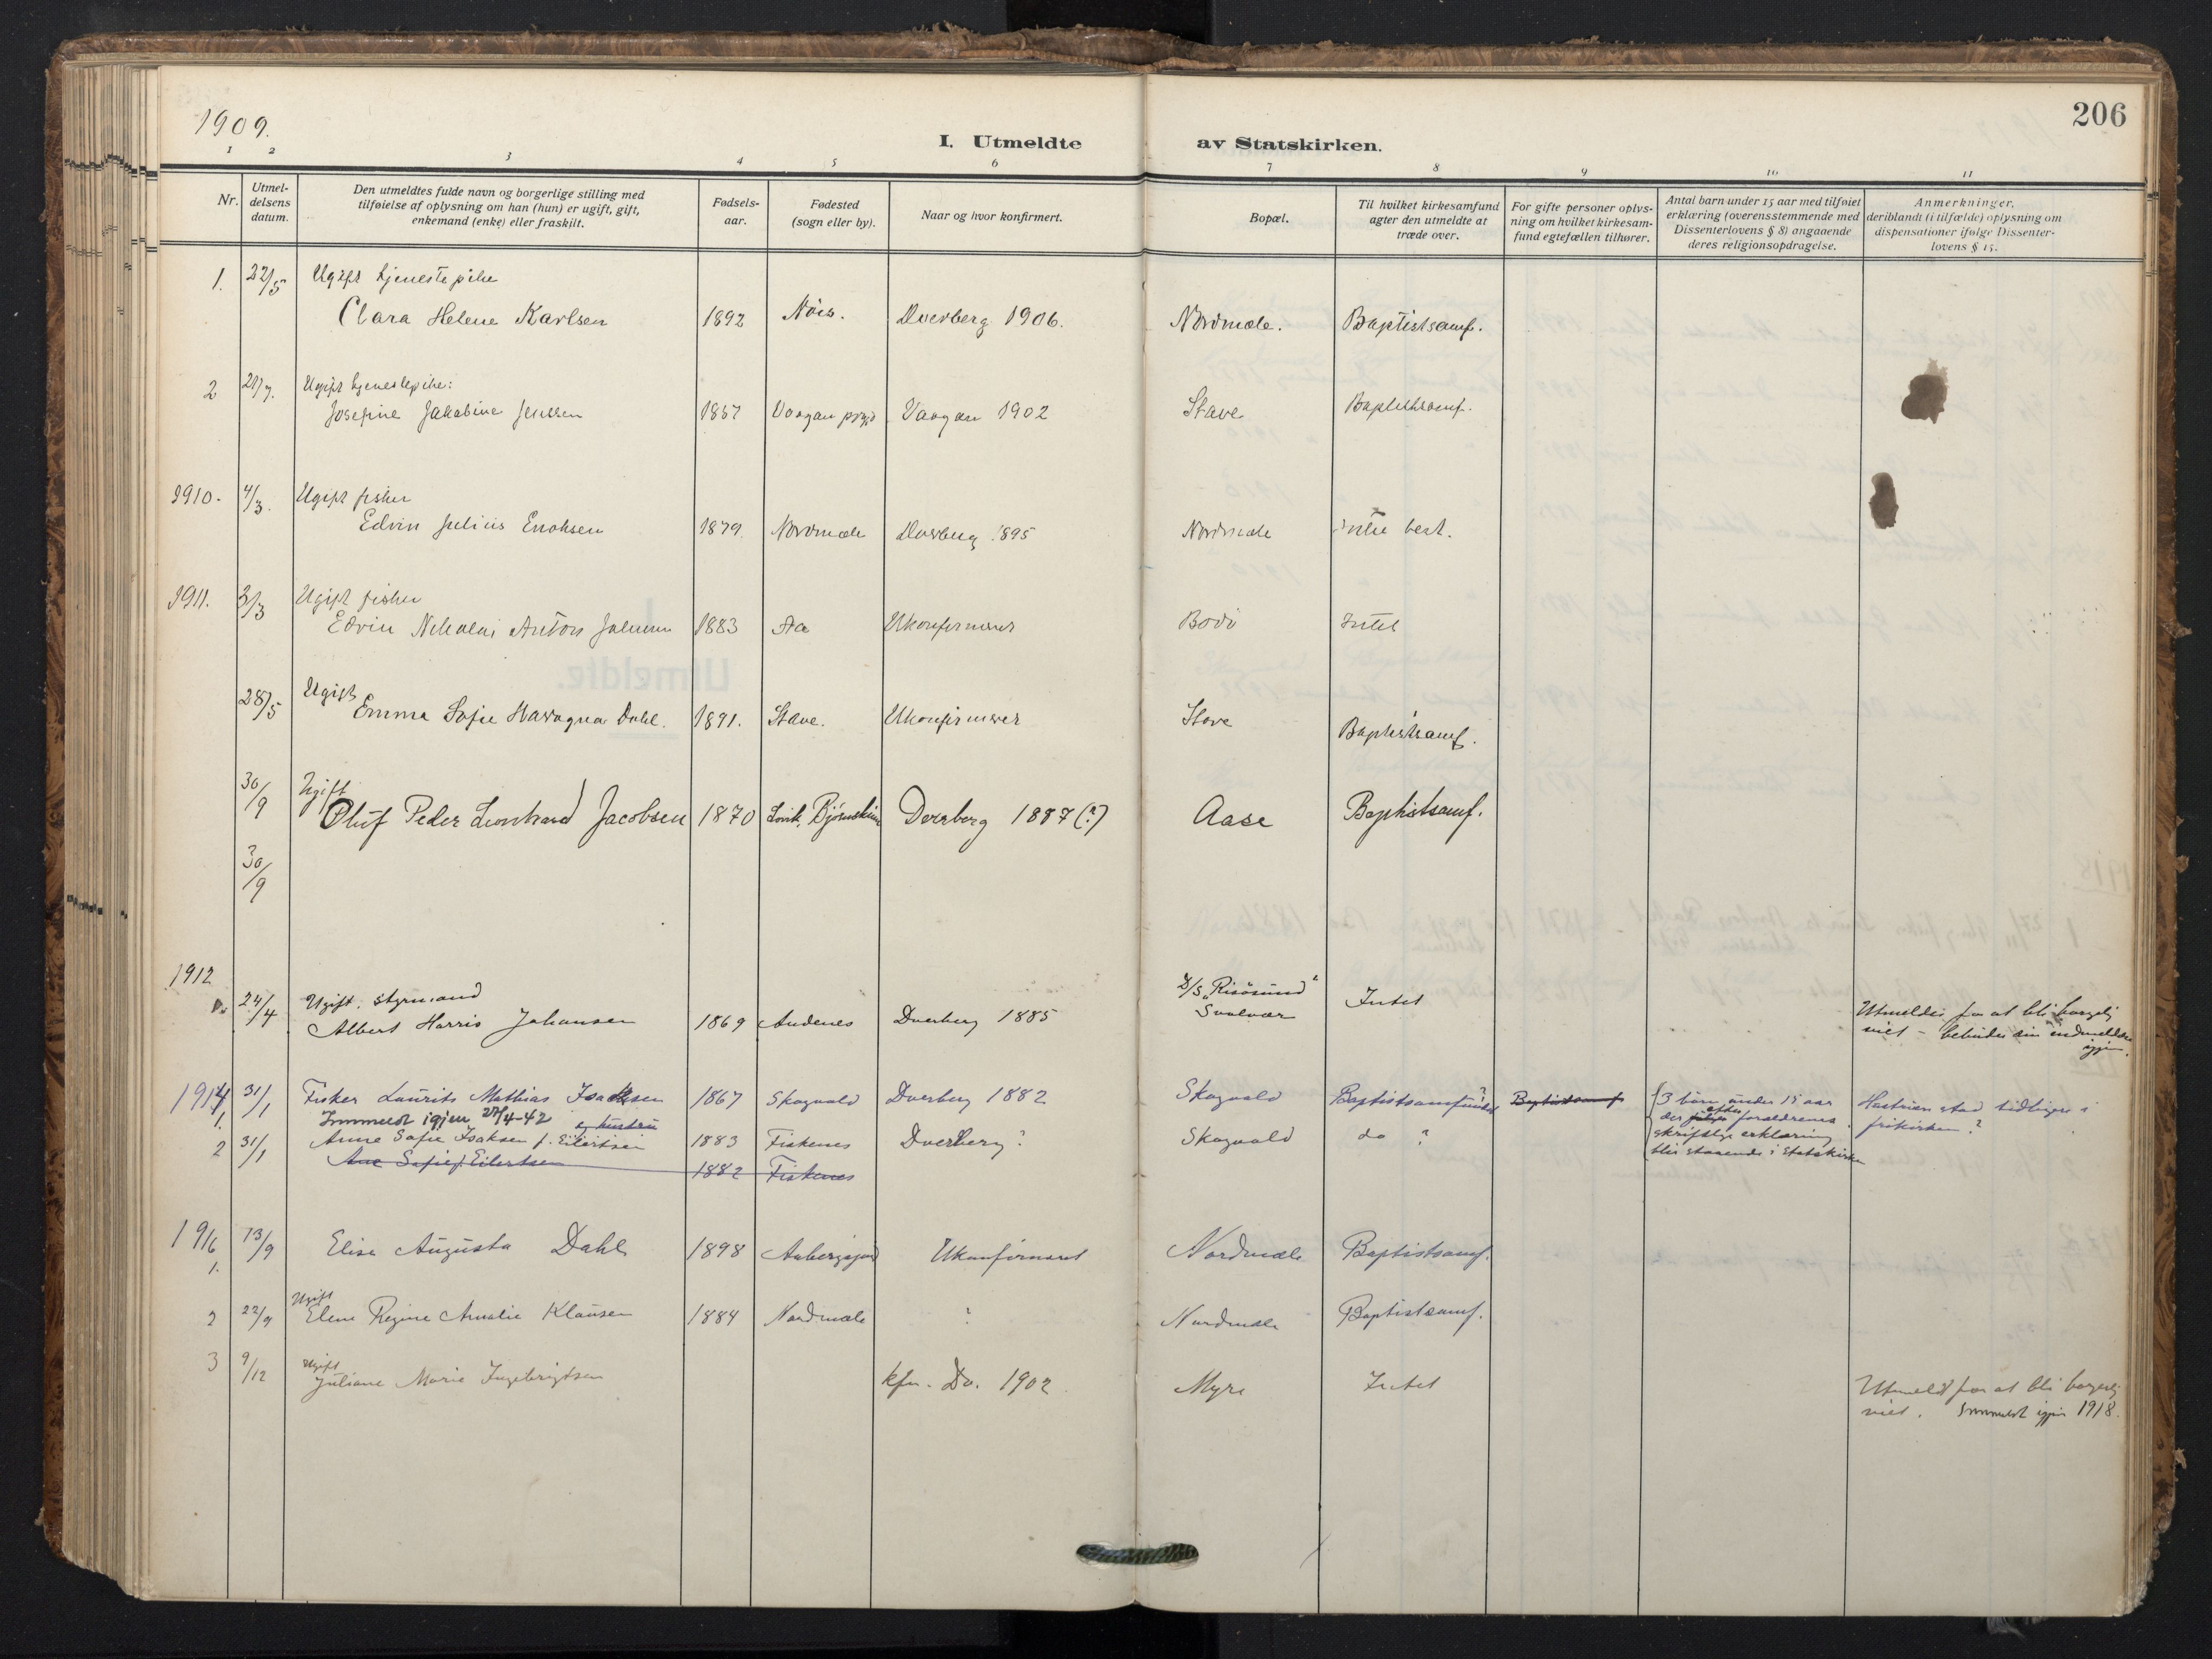 1909.
206
I. Utmeldte av Statskirken.
1 2 3 4 5 6 7 8 9 10 11
Nr.
Utmel-
delsens
datum.
Den utmeldtes fulde navn og borgerlige stilling med
tilføielse af oplysning om han (hun) er ugift, gift,
enkemand (enke) eller fraskilt.
Fødsels-
aar.
Fødested
(sogn eller by).
Naar og hvor konfirmert.
Bopæl.
Til hvilket kirkesamfund
agter den utmeldte at
træde over.
For gifte personer oplys-
ning om hvilket kirkesam-
fund egtefællen tilhører.
Antal barn under 15 aar med tilføiet
erklæring (overensstemmende med
Dissenterlovens § 8) angaaende
deres religionsopdragelse.
Anmerkninger,
deriblandt (i tilfælde) oplysning om
dispensationer ifølge Dissenter-
lovens § 15.
1. 22/5 Ugift tjenestepike
Clara Helene Karlsen 1892 Nöis. Dverberg 1906. Nordmæle. Baptistsamf.
2 21/7. Ugift tjenestepike:
Josefine Jakobine Jenssen 1887 Vaagan Vaagan 1902 Stave Baptistsamf.
1910. 4/3. Ugift fisker
Edvin Julius Enoksen 1879. Nordmæle Dverberg 1895 Nordmæle Intet best.
1911. 3/3 Ugift fisker
Edvin Nikolai Anton Johnsen 1883 Aa Ukonfirmeret Bodö Intet
28/5 Ugift
Emma Sofie Dahl. 1891. Stave. Ukonfirmeret Stave Baptistsamf.
30/9 Ugift
Oluf Peder Leonhard Jacobsen 1870 Björnskinn Dverberg 1887 (?) Aase Baptistsamf.
30/9
1912
24/4 Ugift. styrmand D/S „Risösund"
Albert Harris Johansen 1869 Andenes Dverberg 1885 Svolvær Intet Utmeldt for at bli borgerlig
viet – igjen.
1914 31/1 Fisker Laurits Mathias Isaksen 1867 Skogvold Dverberg 1882 Skogvold Baptistsamfundet? Baptistsamf 3 børn under 15 aar Hustruen stod tidligere i
1. Innmeldt igjen 27/4-42 og hustru der efter forældrenes frikirken?
2 31/1 Anne Sofie Isaksen f. Eilertsen 1883 Fiskenes Dverberg? Skogvold do ? skriftlige erklæring
Ane Sofie f. Eilertsen 1882 Fiskenes blir staaende i Statskirken
1916 13/9 Elise Augusta Dahl 1898 Ukonfirmeret Nordmæle Baptistsamf.
1.
2 22/9 Ugift
Elene Regine Amalie Klausen 1884 Nordmæle ? Nordmæle Baptistsamf.
3 9/12 Ugift
Juliane Marie Ingebrigtsen kfn. Dv. 1902 Myre Intet Utmeldt for at bli borgerlig
viet. Innmeldt igjen 1918.